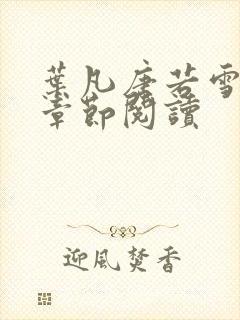 葉凡唐若雪
章節閱讀
迎風焚香